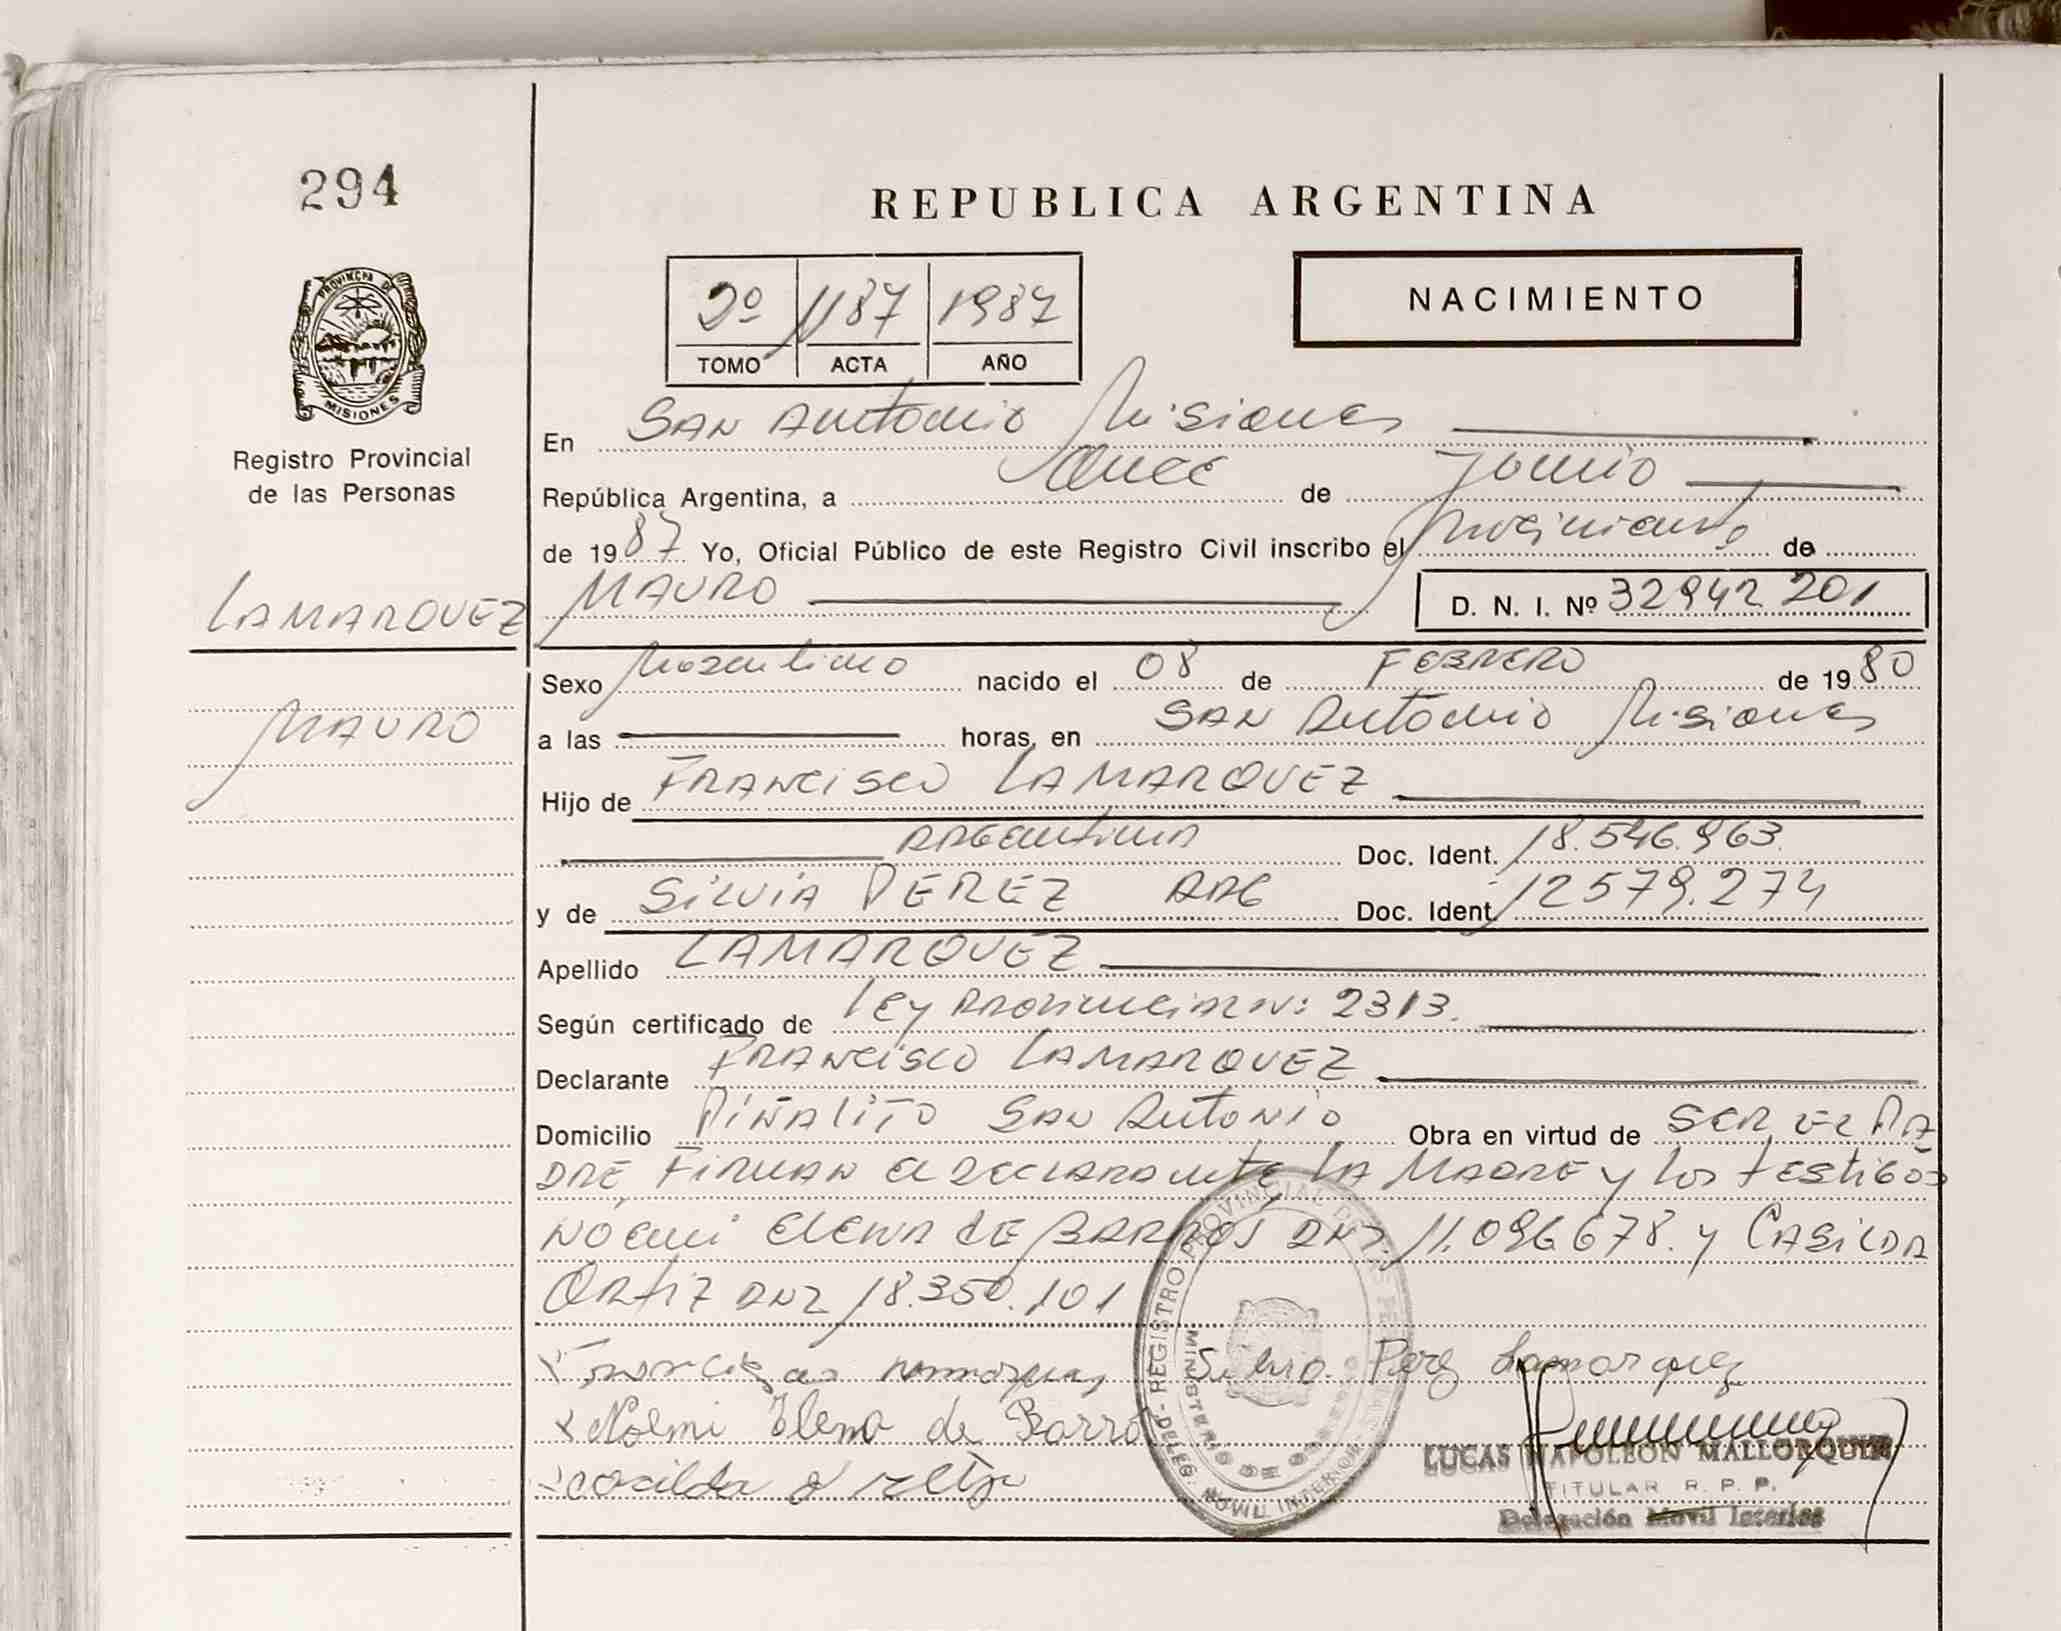 294
REPUBLICA ARGENTINA
PROVINCIA DE MISIONES
Registro Provincial
de las Personas
2º 1187 1987
TOMO ACTA AÑO
NACIMIENTO
En SAN Antonio Misiones
República Argentina, a once de Junio
de 1987 Yo, Oficial Público de este Registro Civil inscribo el Nacimiento de
LAMARQUEZ
MAURO
MAURO D. N. I. Nº 32942201
Sexo Masculino nacido el 08 de FEBRERO de 1980
a las horas, en SAN Antonio Misiones
Hijo de FRANCISCO LAMARQUEZ
ARGentino Doc. Ident. 18.546.963.
y de SILVIA PEREZ ARG Doc. Ident. 12579.274
Apellido LAMARQUEZ
Según certificado de Ley PROvinciAl N: 2313.
Declarante FRANCISCO LAMARQUEZ
Domicilio PIÑALITO SAN Antonio Obra en virtud de SER EL PA
DRE, FIRMAN el DECLARAnte, LA MADRE y los testigos
NOemi ELENA de BARROS DNI. 11.096.678. y CASILDA
ORTIZ DNI 18.350.101
Perez Lamarquez
Noemi Elena de Barro
REGISTRO PROVINCIAL DE LAS PERSONAS - DELEG. MOVIL INTERIOR
MINISTERIO DE GOBIERNO
LUCAS NAPOLEON MALLORQUIN
TITULAR R. P. P.
Delegación Movil Interior